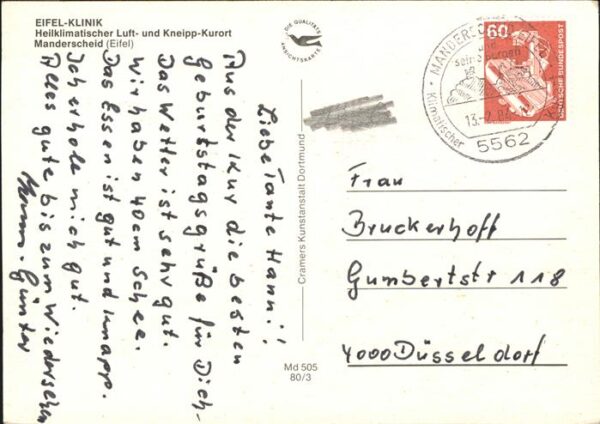 EIFEL-KLINIK
Heilklimatischer Luft- und Kneipp-Kurort
Manderscheid (Eifel)
DIE QUALITÄTS
ANSICHTSKARTE
60
DEUTSCHE BUNDESPOST
MANDERSCHEID
Klimatischer
5562
Liebe Tante Hanni!
Aus der Kur die besten
Geburtstagsgrüße für Dich-
Das Wetter ist sehr gut.
Wir haben 40 cm Schee.
Das Essen ist gut und knapp.
Ich erhole mich gut.
Alles gute bis zum Wiedersehen
Günter
Cramers Kunstanstalt Dortmund
Md 505
80/3
Frau
Bruckerhoff
Gumbertstr 118
4000 Düsseldorf